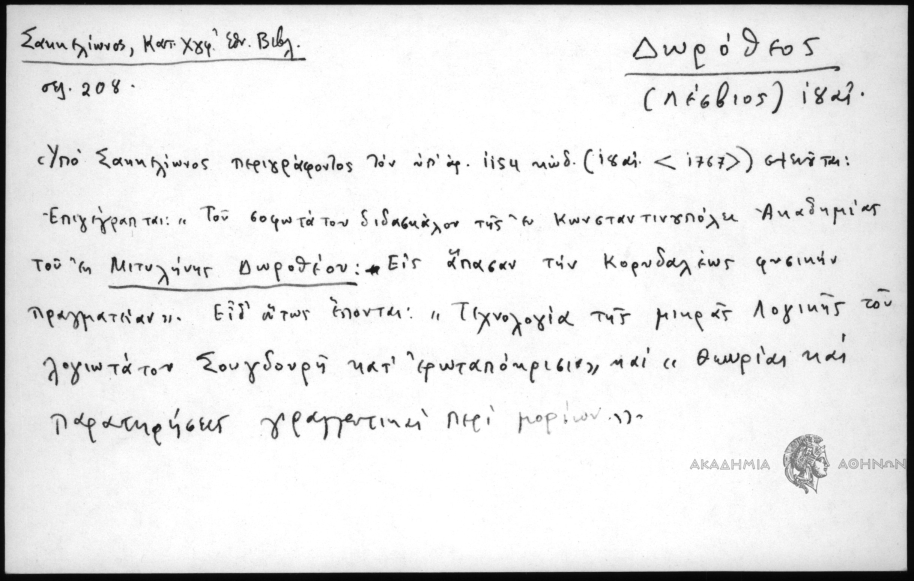 Σακκελίωνος, Κατ. Χγφ. Ἐθν. Βιβλ.
σελ. 208.
Δωρόθεος
(Λέσβιος) ιηαι.
Ὑπὸ Σακκελίωνος περιγράφοντος τὸν ὑπ' ἀρ. 1154 κώδ. (ιηαι. <1767>)
Ἐπιγέγραπται: „ Τοῦ σοφωτάτου διδασκάλου τῆς ἐν Κωνσταντινουπόλει Ἀκαδημίας
τοῦ ἐκ Μιτυλήνης Δωροθέου: Εἰς ἅπασαν τὴν Κορυδαλέως φυσικὴν
πραγματείαν». Εἶθ' οὕτως ἕπονται: „ Τεχνολογία τῆς μικρᾶς Λογικῆς τοῦ
λογιωτάτου Σουγδουρῆ κατ' ἐρωταπόκρισιν», καὶ « Θεωρίαι καὶ
παρατηρήσεις γραμματικαὶ περὶ μορίων.».
ΑΚΑΔΗΜΙΑ ΑΘΗΝΩΝ